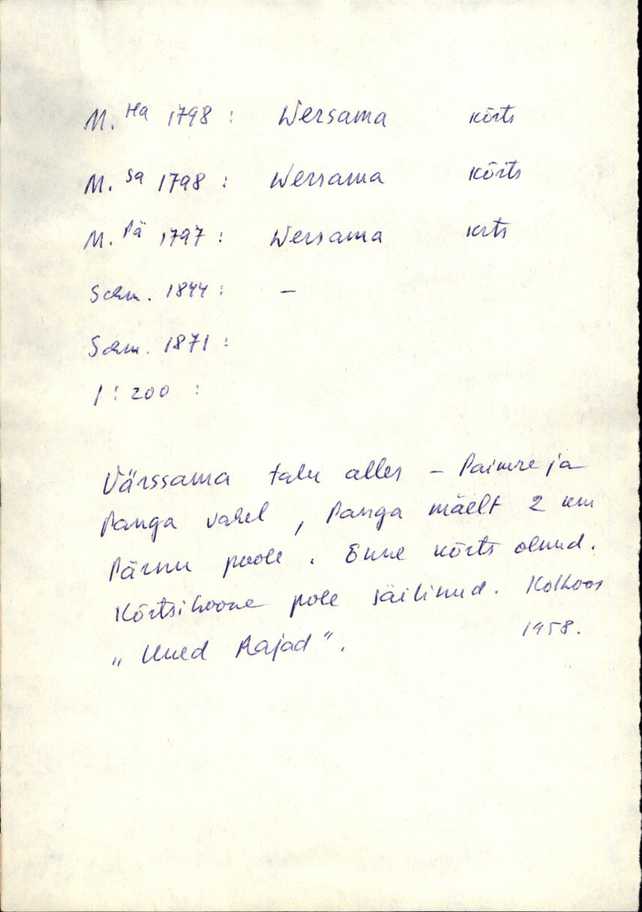 M. Ha 1798 : Wersama kõrts
M. Sa 1798 : Wersama kõrts
M. Pä 1797 : Wersama krts
Schm. 1844 : –
Schm. 1871 :
1 : 200 :
Värssama talu alles – Paimre ja
Panga vahel, Panga mäelt 2 km
Pärnu poole. Enne kõrts olnud.
Kõrtsihoone pole säilinud. Kolhoos
„Uued Rajad”. 1958.